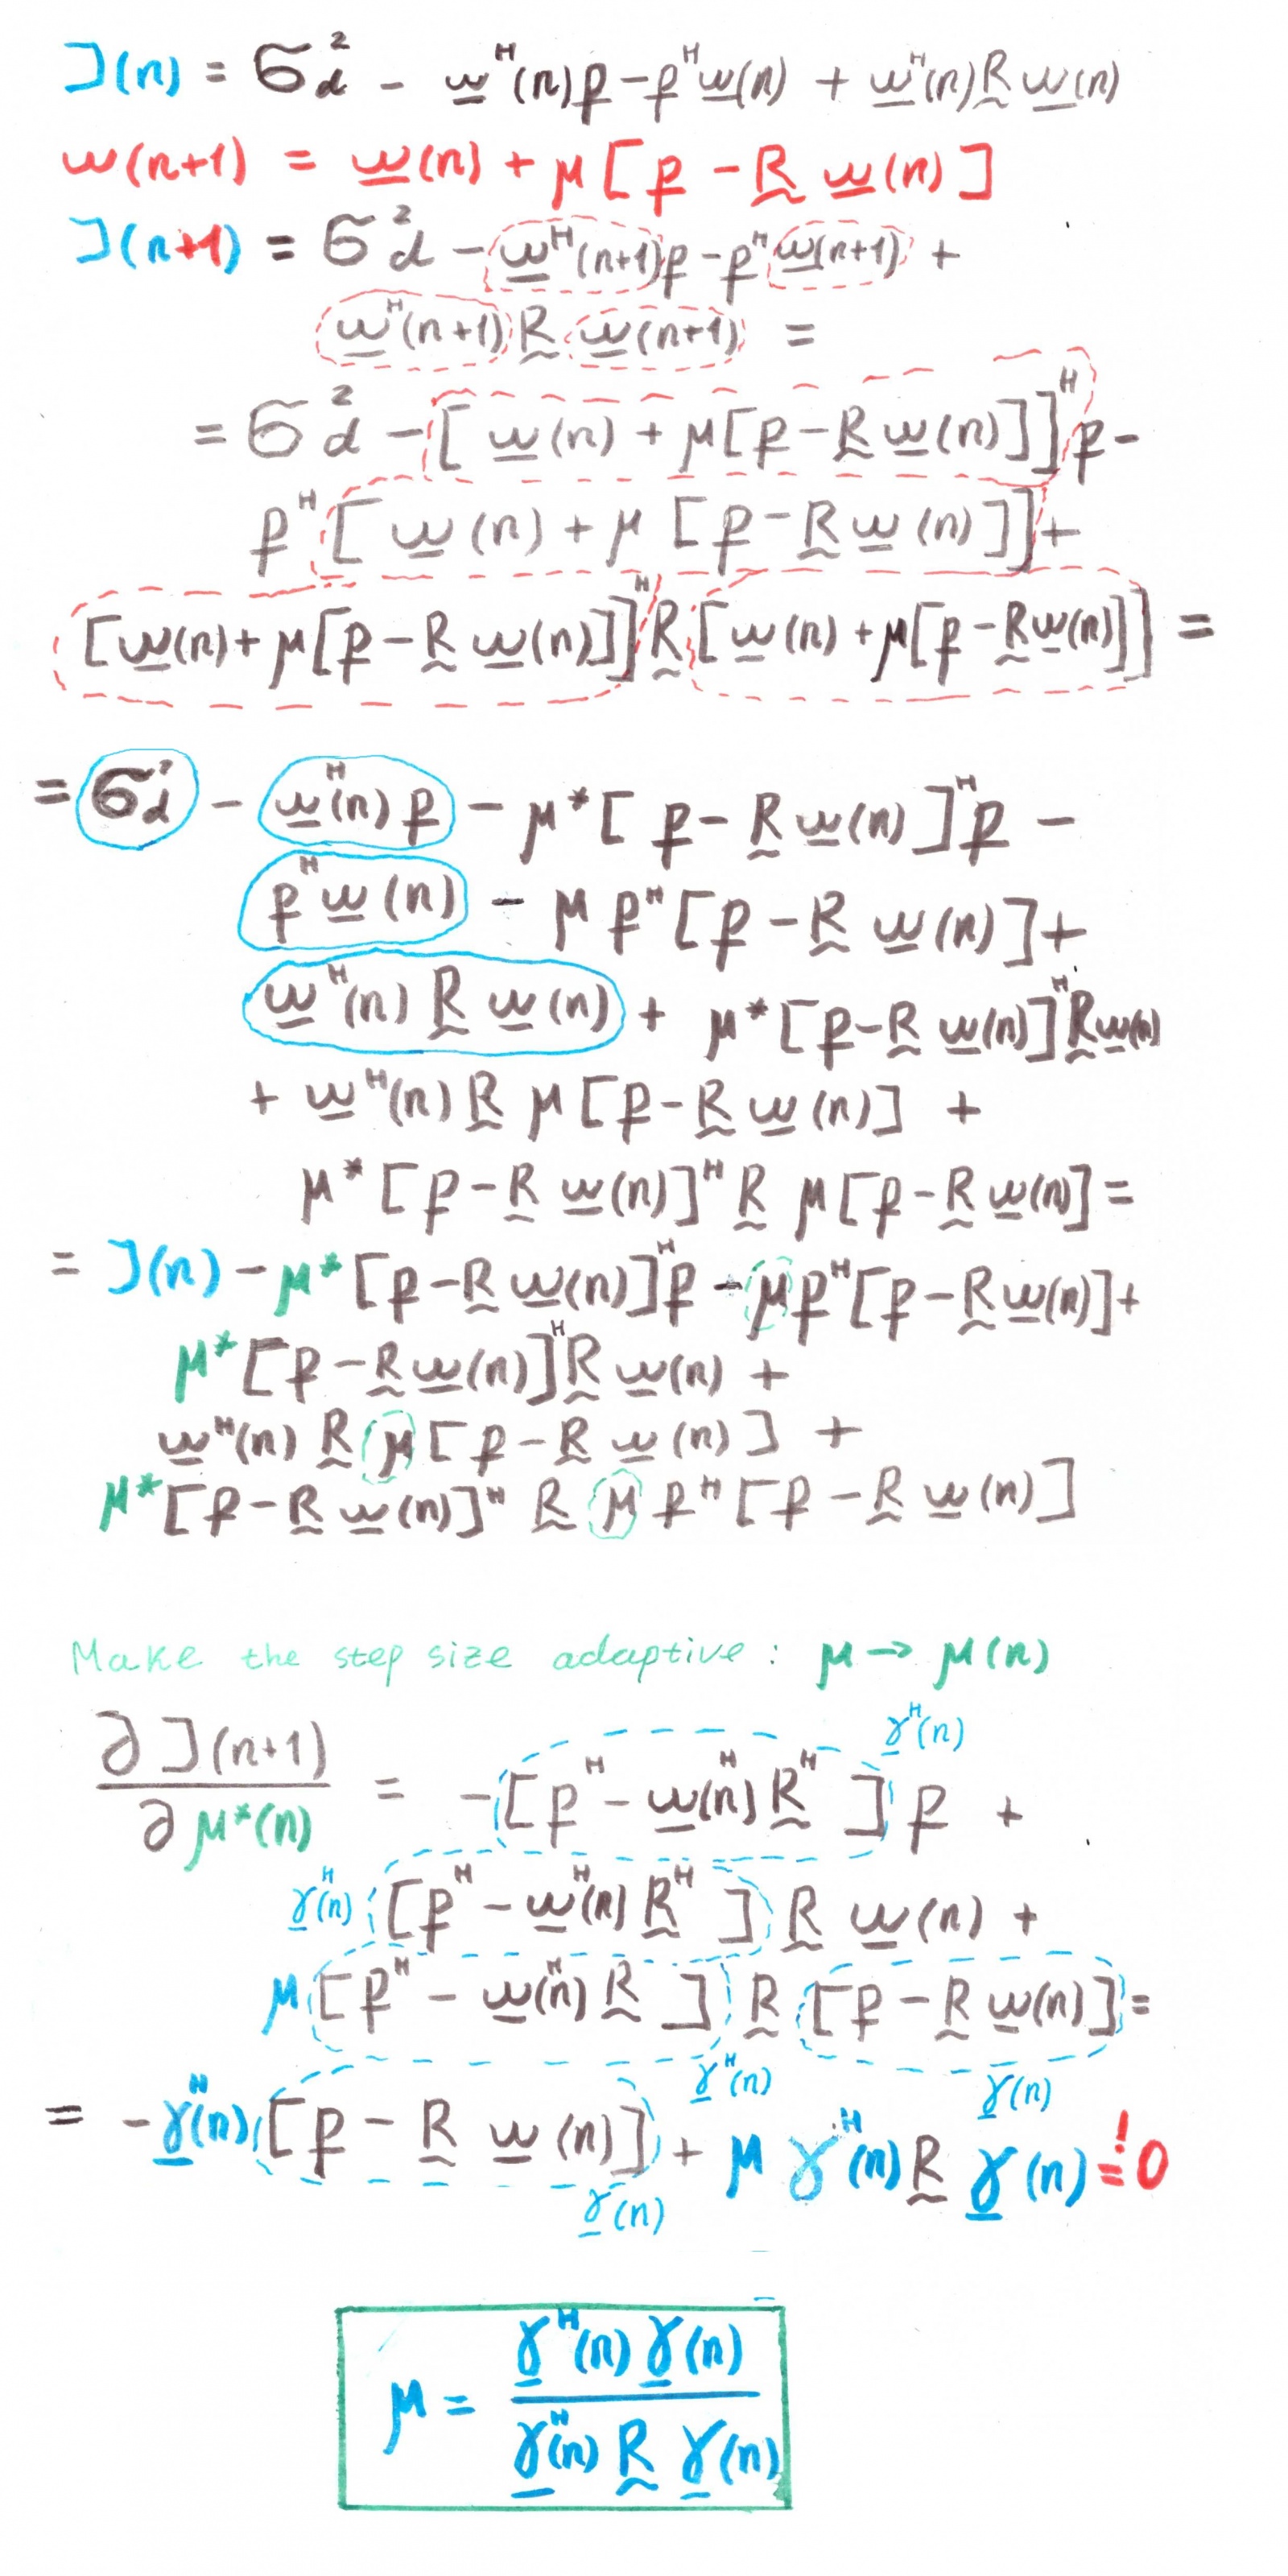 J(n) = σ_d² - w^H(n)p - p^H w(n) + w^H(n) R w(n)
w(n+1) = w(n) + μ[p - R w(n)]
J(n+1) = σ_d² - w^H(n+1)p - p^H w(n+1) +
w^H(n+1) R w(n+1) =
= σ_d² - [w(n) + μ[p - R w(n)]]^H p -
p^H [w(n) + μ[p - R w(n)]] +
[w(n) + μ[p - R w(n)]]^H R [w(n) + μ[p - R w(n)]] =
= σ_d² - w^H(n) p - μ*[p - R w(n)]^H p -
p^H w(n) - μ p^H [p - R w(n)] +
w^H(n) R w(n) + μ*[p - R w(n)]^H R w(n)
+ w^H(n) R μ[p - R w(n)] +
μ*[p - R w(n)]^H R μ[p - R w(n)] =
= J(n) - μ*[p - R w(n)]^H p - μ p^H [p - R w(n)] +
μ*[p - R w(n)]^H R w(n) +
w^H(n) R μ[p - R w(n)] +
μ*[p - R w(n)]^H R μ p^H [p - R w(n)]
Make the step size adaptive: μ → μ(n)
∂J(n+1) / ∂μ*(n) = -[p^H - w^H(n) R^H] p + γ^H(n)
γ^H(n) [p^H - w^H(n) R^H] R w(n) +
μ[p^H - w^H(n) R] R [p - R w(n)] =
γ^H(n) γ(n)
= -γ^H(n) [p - R w(n)] + μ γ^H(n) R γ(n) =! 0
γ(n)
μ = γ^H(n) γ(n) / γ^H(n) R γ(n)